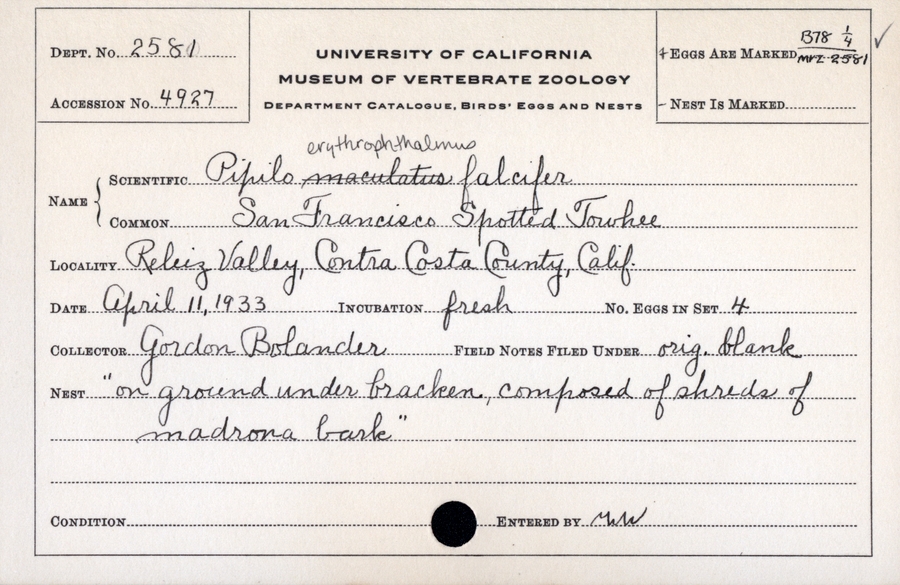 Dept. No. 2581
Accession No. 4927
UNIVERSITY OF CALIFORNIA
MUSEUM OF VERTEBRATE ZOOLOGY
Department Catalogue, Birds' Eggs and Nests
+ Eggs Are Marked B78 1/4
MVZ 2581
- Nest Is Marked
erythrophthalmus
Name { Scientific Pipilo maculatus falcifer
Common San Francisco Spotted Towhee
Locality Reliez Valley, Contra Costa County, Calif.
Date April 11, 1933 Incubation fresh No. Eggs in Set 4
Collector Gordon Bolander Field Notes Filed Under orig. blank
Nest "on ground under bracken, composed of shreds of
madrona bark"
Condition Entered by